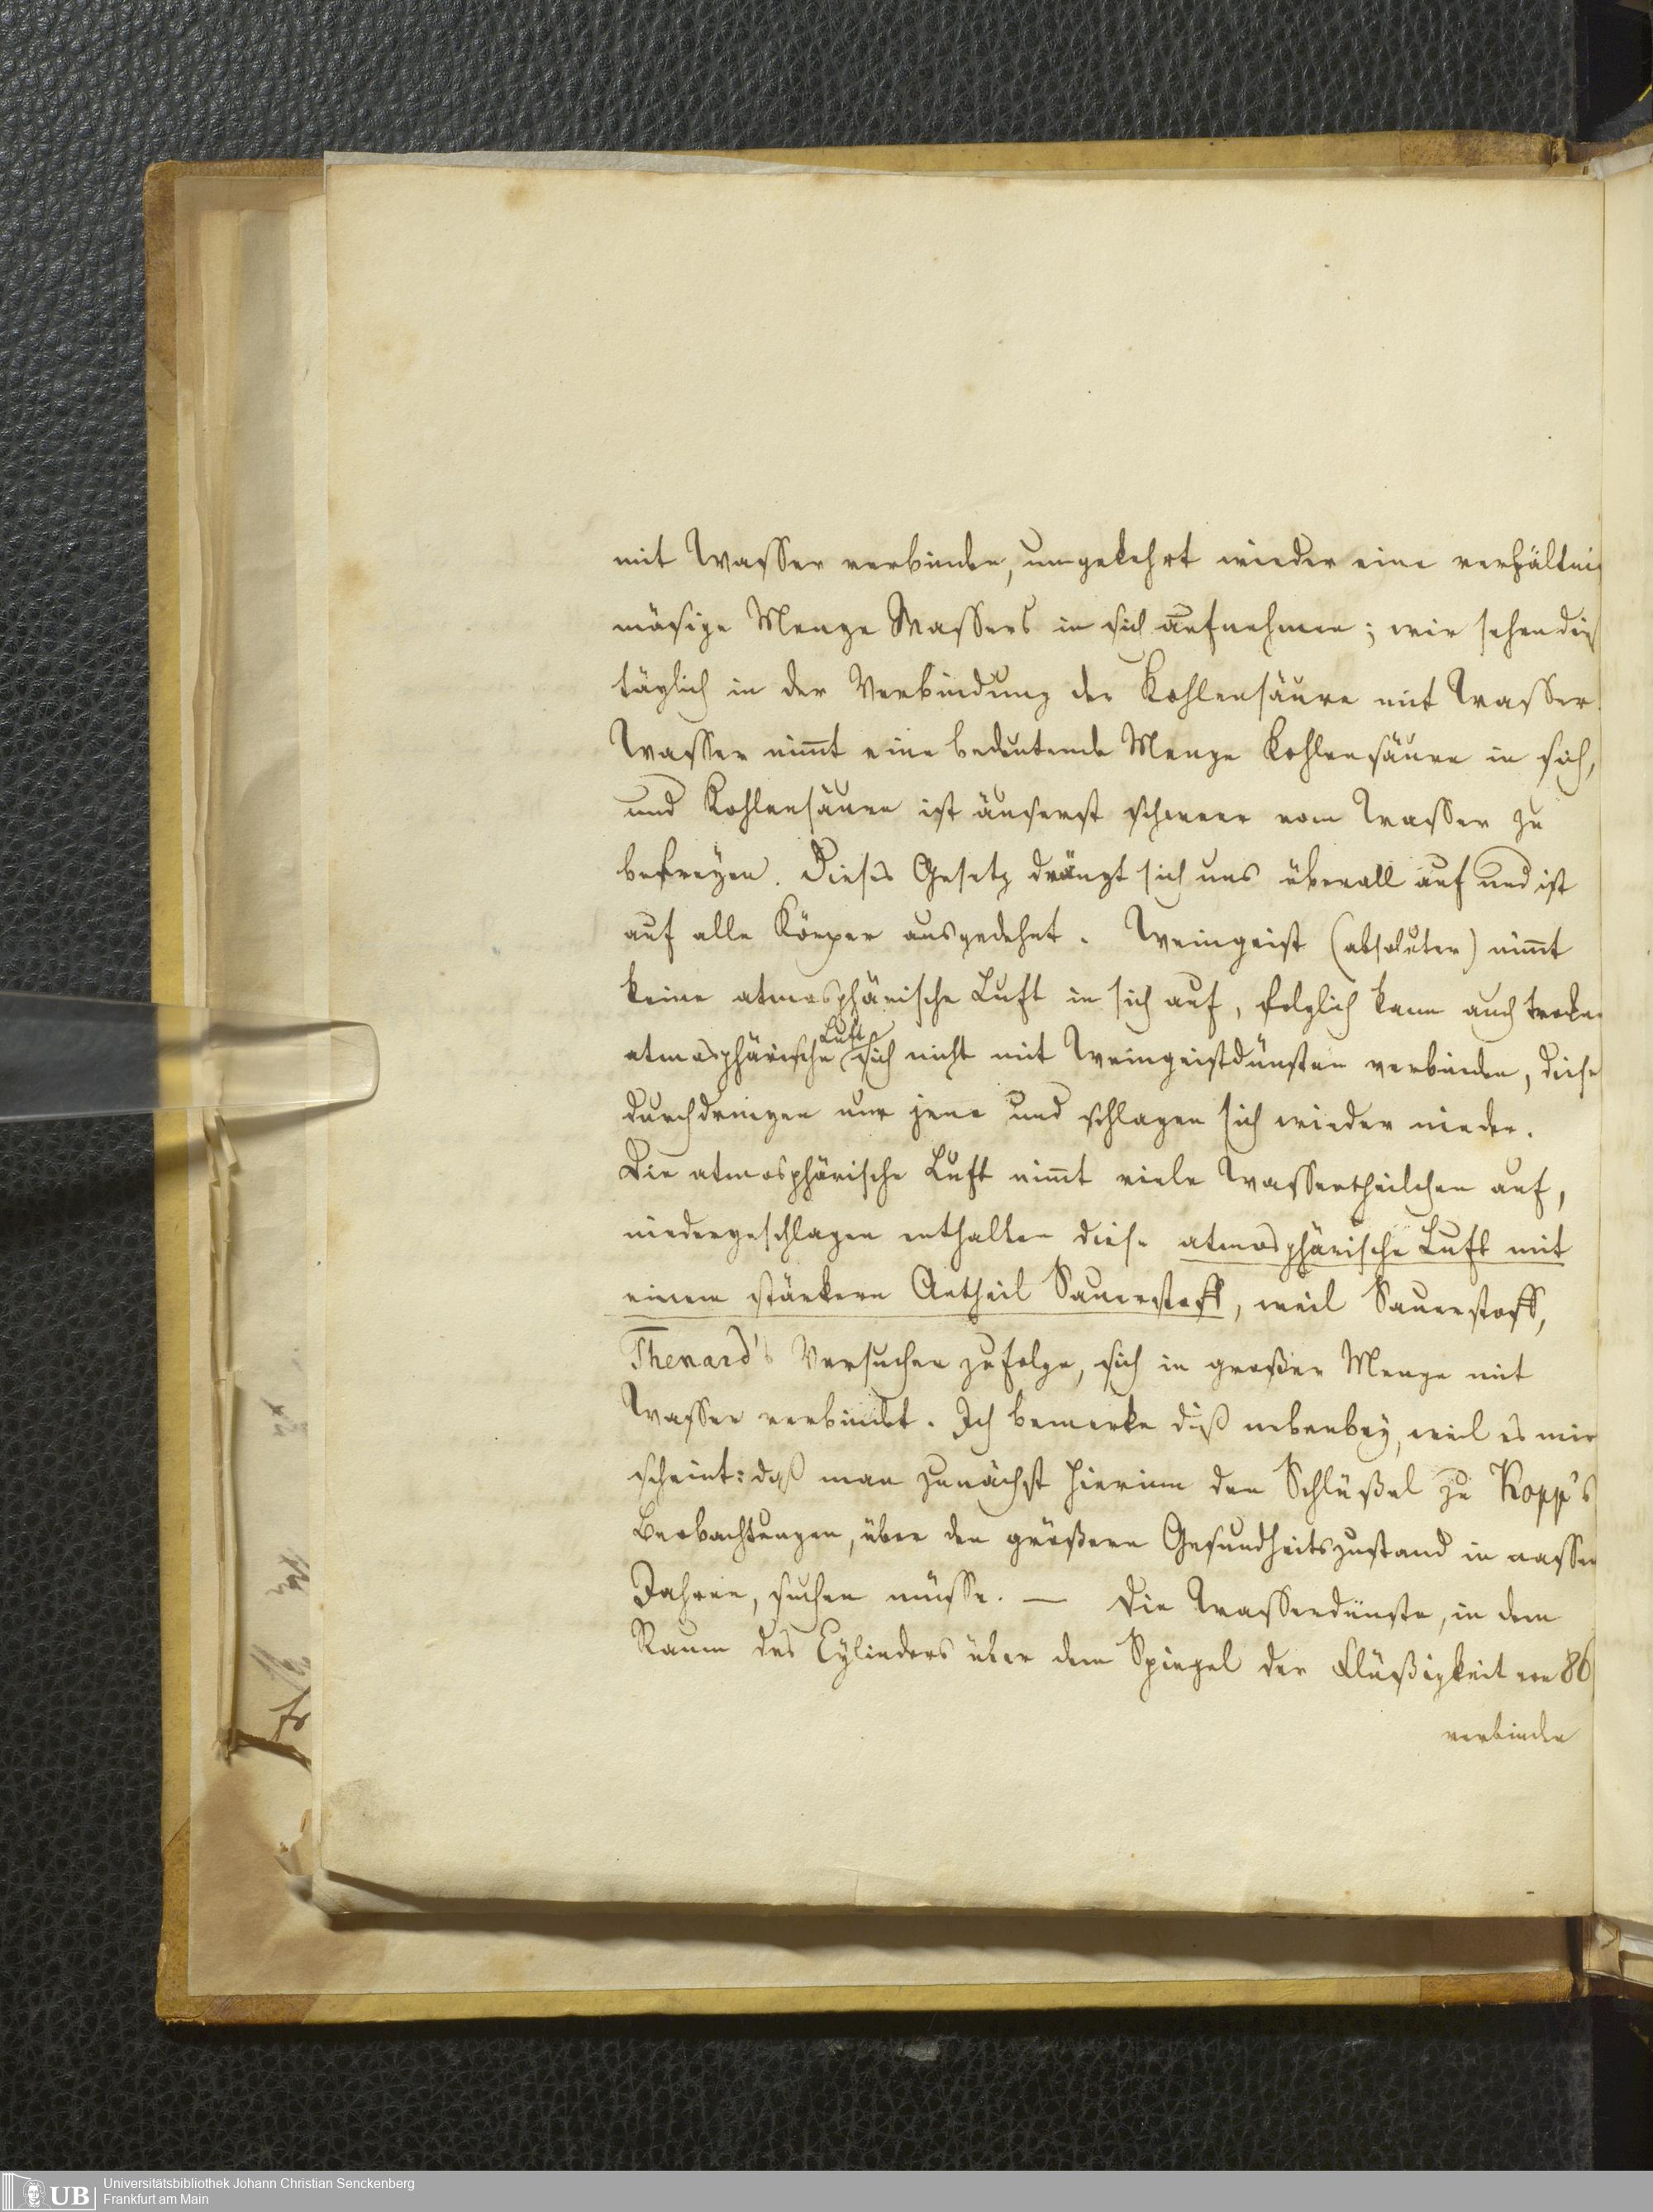 mit Wasser verbinden, umgekehrt wieder eine verhältni
mäsige Menge Wassers in sich aufnehmen; wir sehen dieß
täglich in der Verbindung der Kohlensäure mit Wasser.
Wasser nim̄t eine bedeutende Menge Kohlensäure in sich,
und Kohlensäure ist äuserst schwer vom Wasser zu
befreyen. Dieses Gesetz drängt sich uns überall auf und ist
auf alle Körper ausgedehnt. Weingeist (absoluter) nim̄t
keine atmosphärische Luft in sich auf, folglich kann auch trockne
Luft
atmosphärische sich nicht mit Weingeistdünsten verbinden, diese
durchdringen nur jene und schlagen sich wieder nieder.
Die atmosphärische Luft nim̄t viele Wassertheilchen auf,
niedergeschlagen enthalten diese atmosphärische Luft mit
einem stärkern Antheil Sauerstoff, weil Sauerstoff,
Thenard's Versuchen zufolge, sich in großer Menge mit
Wasser verbindet. Ich bemerke diß nebenbey, weil es mir
scheint: daß man zunächst hierinn den Schlüßel zu Kopp's
Beobachtungen, über den größern Gesundheitszustand in nassen
Jahren, suchen müsse. — Die Wasserdünste, in dem
Raum des Cylinders über dem Spiegel der Flüßigkeit 86
verbinden
UB
Universitätsbibliothek Johann Christian Senckenberg
Frankfurt am Main